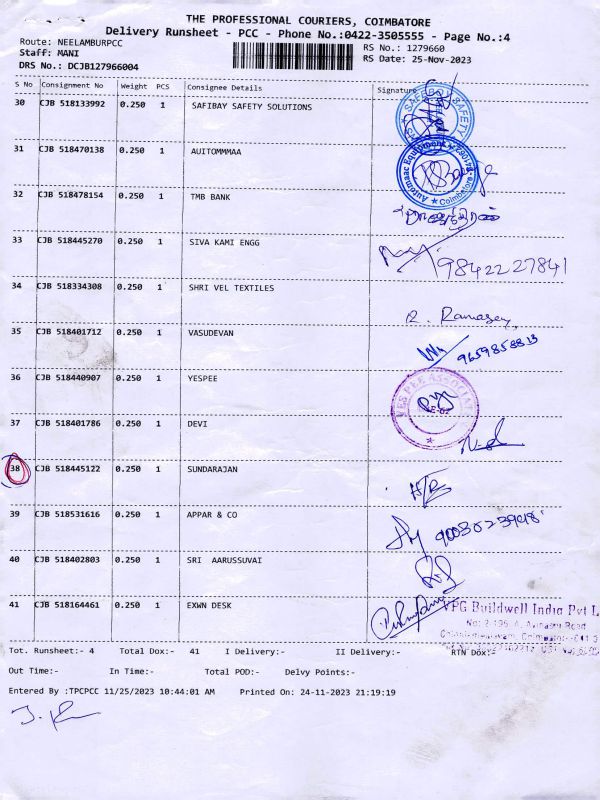 THE PROFESSIONAL COURIERS, COIMBATORE
Delivery Runsheet - PCC - Phone No.:0422-3505555 - Page No.:4
Route: NEELAMBURPCC RS No.: 1279660
Staff: MANI RS Date: 25-Nov-2023
DRS No.: DCJB127966004
S No Consignment No Weight PCS Consignee Details Signature
30 CJB 518133992 0.250 1 SAFIBAY SAFETY SOLUTIONS
31 CJB 518470138 0.250 1 AUITOMMMAA
32 CJB 518478154 0.250 1 TMB BANK
33 CJB 518445270 0.250 1 SIVA KAMI ENGG 9842227841
34 CJB 518334308 0.250 1 SHRI VEL TEXTILES R. Ramasey
35 CJB 518401712 0.250 1 VASUDEVAN 9659858813
36 CJB 518440907 0.250 1 YESPEE
37 CJB 518401786 0.250 1 DEVI
38 CJB 518445122 0.250 1 SUNDARAJAN
39 CJB 518531616 0.250 1 APPAR & CO 9003023948
40 CJB 518402803 0.250 1 SRI AARUSSUVAI
41 CJB 518164461 0.250 1 EXWN DESK VPG Buildwell India Pvt L
Tot. Runsheet:- 4 Total Dox:- 41 I Delivery:- II Delivery:- RTN Dox:-
Out Time:- In Time:- Total POD:- Delvy Points:-
Entered By :TPCPCC 11/25/2023 10:44:01 AM Printed On: 24-11-2023 21:19:19